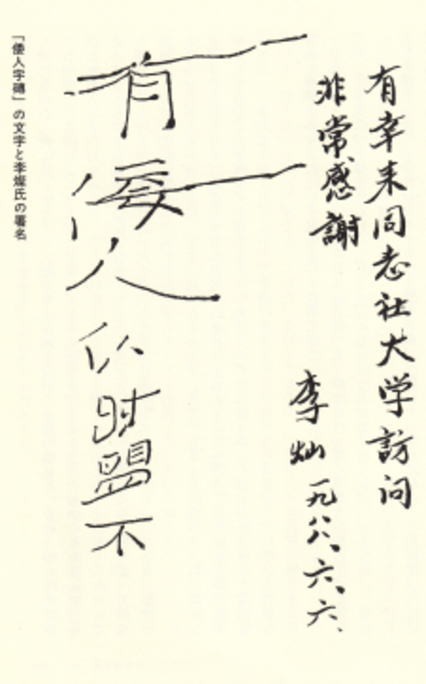 有幸来同志社大学訪问
非常感謝
李灿 一九八八、六、六.
有倭人以时盟不
「倭人字磚」の文字と李燦氏の署名